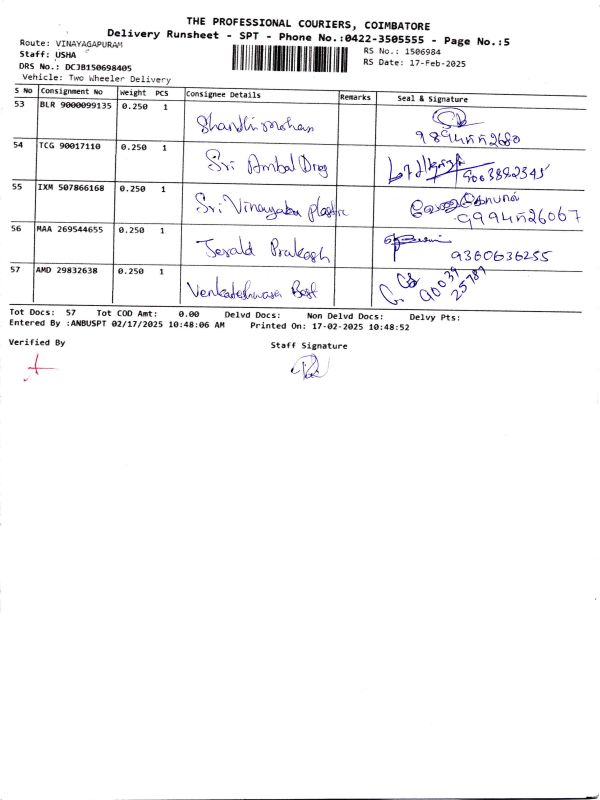 THE PROFESSIONAL COURIERS, COIMBATORE
Delivery Runsheet - SPT - Phone No.:0422-3505555 - Page No.:5
Route: VINAYAGAPURAM
Staff: USHA
RS No.: 1506984
DRS No.: DCJB150698405
RS Date: 17-Feb-2025
Vehicle: Two Wheeler Delivery
S No Consignment No Weight PCS Consignee Details Remarks Seal & Signature
53 BLR 9000099135 0.250 1 Shanthi mohan
54 TCG 90017110 0.250 1 Sri Ambal Drug 9003892345
55 IXM 507866168 0.250 1 Sri Vinayaka plastic
56 MAA 269544655 0.250 1 Jerald Prakash 9360636255
57 AMD 29832638 0.250 1 Venkateshwara Best 90039 25789
Tot Docs: 57 Tot COD Amt: 0.00 Delvd Docs: Non Delvd Docs: Delvy Pts:
Entered By :ANBUSPT 02/17/2025 10:48:06 AM Printed On: 17-02-2025 10:48:52
Verified By
Staff Signature